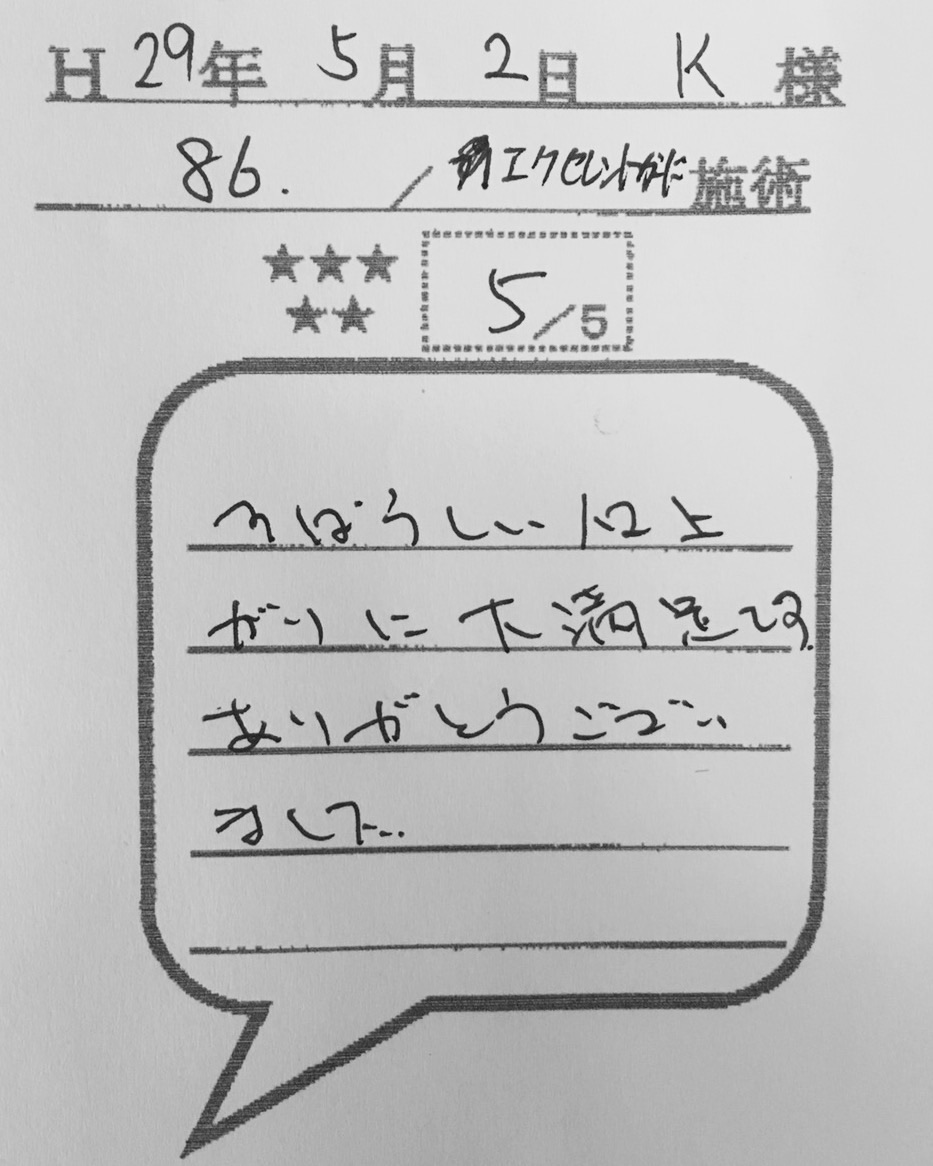 H29年 5月 2日 K 様
86. / エクセレント 施術
★★★
★★
5/5
すばらしい仕上
がりに大満足です。
ありがとうござい
ました。